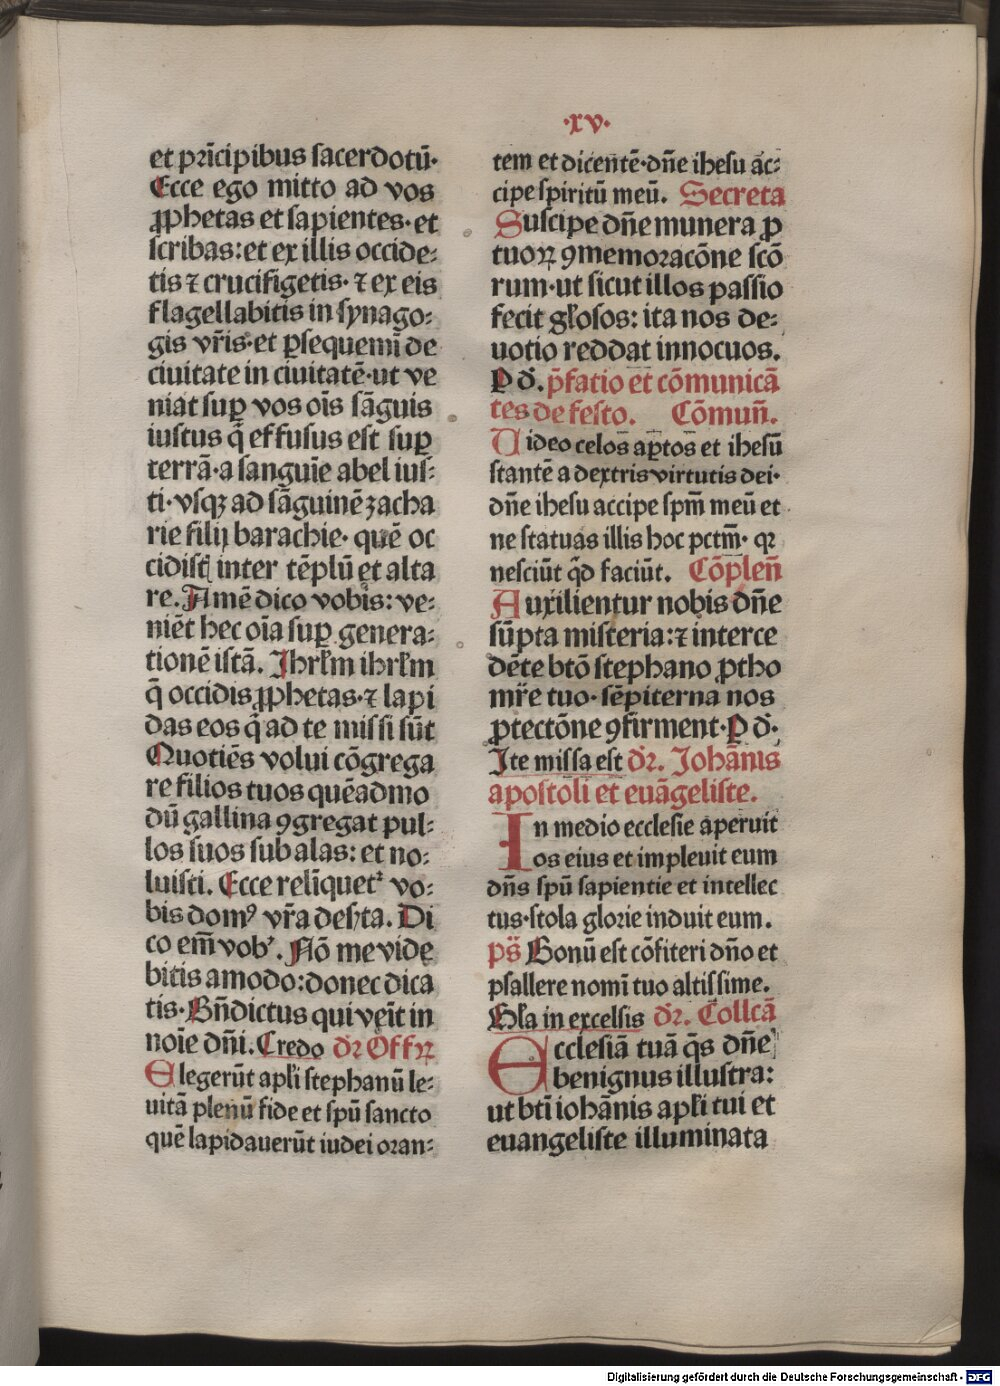 ·xv·
et pri̅cipibus sacerdotū·
Ecce ego mitto ad vos
ꝓphetas et sapientes· et
scribas: et ex illis occide⸗
tis ⁊ crucifigetis· ⁊ ex eis
flagellabitis in synago⸗
gis vr̄is· et ꝑsequemī de
ciuitate in ciuitatē· ut ve
niat suꝑ vos oīs sāguis
iustus q̄ effusus est suꝑ
terrā· a sanguīe abel ius⸗
ti· vsqꝫ ad sāguinē zacha
rie filij barachie· quē oc
cidisti inter tēplū et alta
re. Amē dico vobis: ve⸗
niēt hec oīa suꝑ genera⸗
tionē istā. Jhrl̄m ihrl̄m
q̄ occidis ꝓphetas· ⁊ lapi
das eos q̄ ad te missi sūt
Quotiēs volui cōgrega
re filios tuos quēadmo
dū gallina ꝯgregat pul⸗
los suos sub alas: et no⸗
luisti. Ecce relīquet᷑ vo⸗
bis domꝰ vr̄a desʼta. Di
co em̄ vob᷑. Nō me vide
bitis amodo: donec dica
tis· Bn̄dictus qui veīt in
noīe dn̄i. Credo dr̄ Offꝝ
Elegerūt apl̄i stephanū le⸗
uitā plenū fide et spū sancto
quē lapidauerūt iudei oran⸗
tem et dicentē· dn̄e ihesu ac⸗
cipe spiritū meū. Secreta
Suscipe dn̄e munera ꝓ
tuoꝝ ꝯmemoracōne scō
rum· ut sicut illos passio
fecit gl̄osos: ita nos de⸗
uotio reddat innocuos.
P d̄. p̄fatio et cōmunicā
tes de festo. Cōmun̄.
Video celos aꝑtos et ihesū
stantē a dextris virtutis dei·
dn̄e ihesu accipe spm̄ meū et
ne statuas illis hoc pctm̄· qꝛ
nesciūt qd̄ faciūt. Cōplen̄
Auxilientur nobis dn̄e
sūpta misteria: ⁊ interce
dēte btō stephano ꝓtho
mr̄e tuo· sēpiterna nos
ꝓtectōne ꝯfirment· P d̄·
Ite missa est dr̄. Johānis
apostoli et euāgeliste.
In medio ecclesie aperuit
os eius et impleuit eum
dn̄s spū sapientie et intellec
tus· stola glorie induit eum.
ps̄ Bonū est cōfiteri dn̄o et
psallere nomī tuo altissime.
Gl̄a in excelsis dr̄. Collcā
Ecclesiā tuā q̄s dn̄e
benignus illustra:
ut btī iohānis apl̄i tui et
euangeliste illuminata
Digitalisierung gefördert durch die Deutsche Forschungsgemeinschaft - DFG